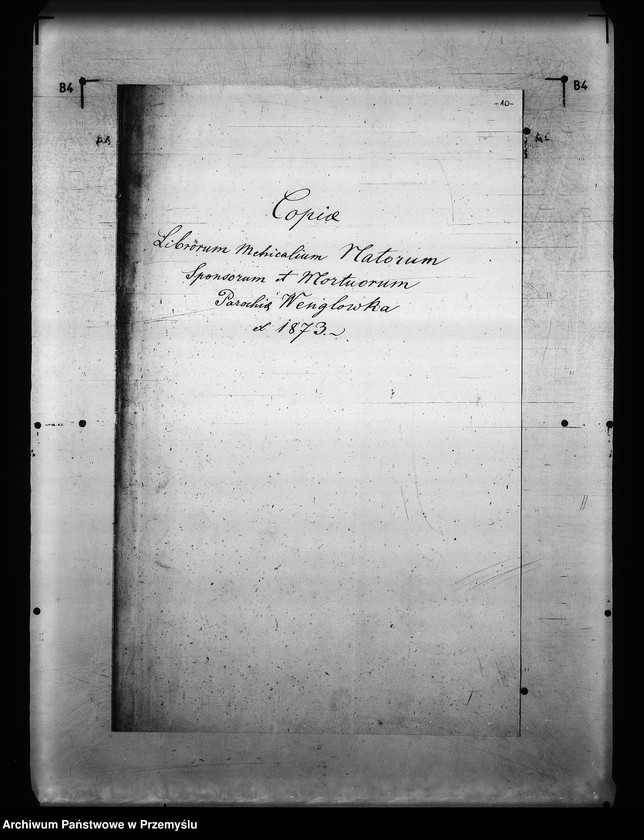 B4
B4
-10-
A4
Copiæ
Librorum Metricalium Natorum
Sponsorum et Mortuorum
Parochiæ Wenglowka
1873.
Archiwum Państwowe w Przemyślu